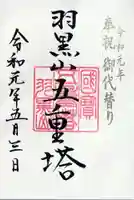 令和元年
奉祝 御代替り
羽黒山五重塔
令和元年五月三日